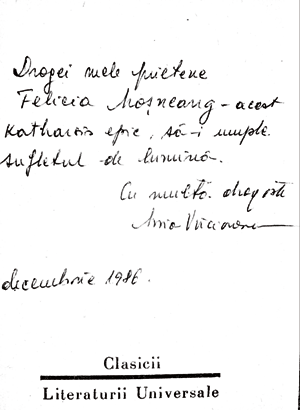 Dragei mele prietene
Felicia Moșneang - acest
Katharsis epic, să-i umple
sufletul de lumină.
Cu multă dragoste
decembrie 1986.
Clasicii
Literaturii Universale